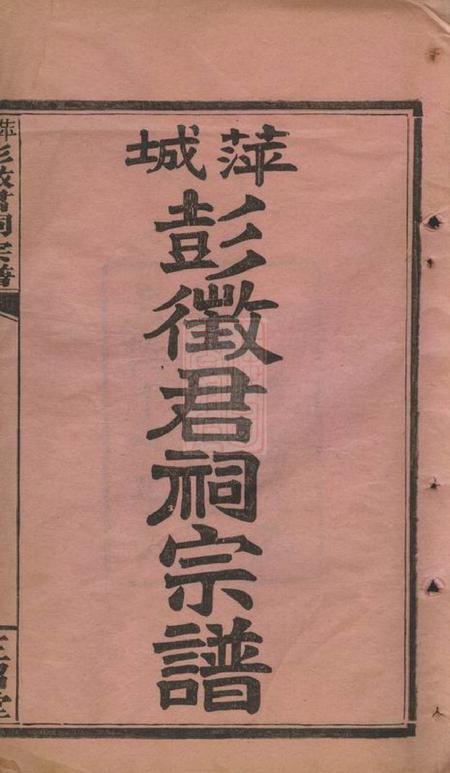 萍城
彭徵君祠宗譜
萍彭徵君祠宗譜